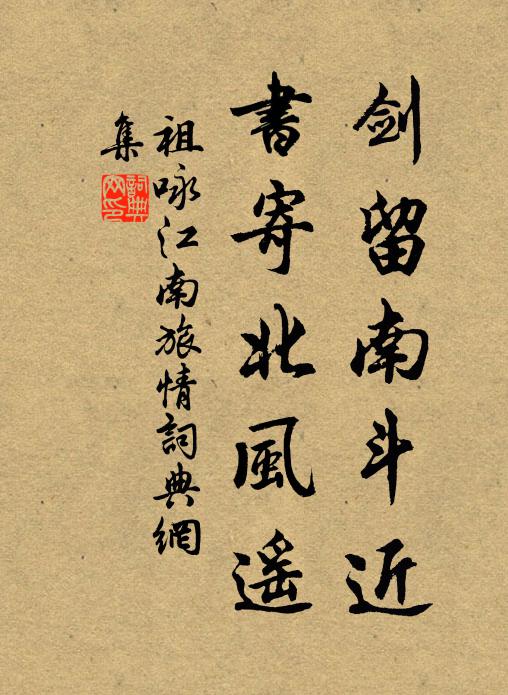 剑留南斗近
書寄北風遥
祖咏江南旅情詞典網
集
詞典
网印